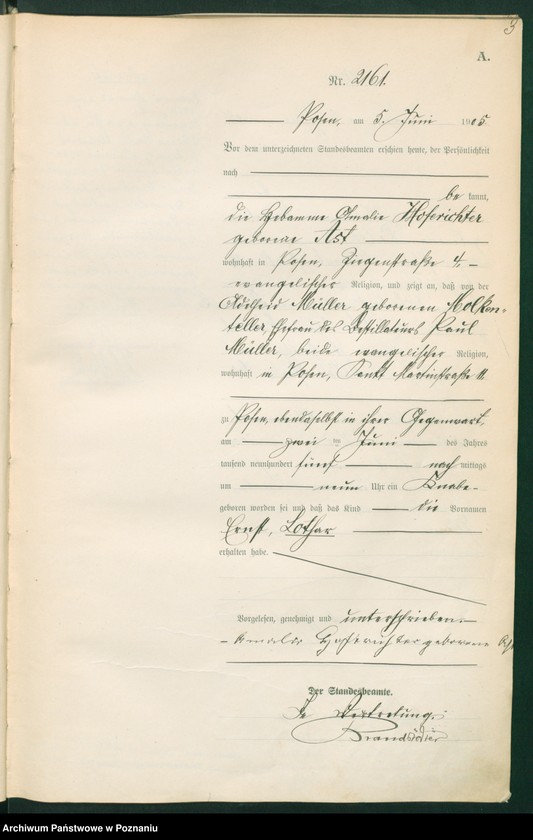 3
A.
Nr. 2161.
Posen, am 5. Juni 1905
Vor dem unterzeichneten Standesbeamten erschien heute, der Persönlichkeit
nach
be kannt,
die Hebamme Amalie Hoferichter
geborene Ast
wohnhaft in Posen, Ziegenstraße 4,
evangelischer Religion, und zeigte an, daß von der
Adelheid Müller geborenen Molken-
teller, Ehefrau des Destillateurs Paul
Müller, beide evangelischer Religion,
wohnhaft in Posen, Sankt Martinstraße 11
zu Posen, ebendaselbst in ihrer Gegenwart,
am zwei ten Juni des Jahres
tausend neunhundert fünf nach mittags
um neun Uhr ein Knabe
geboren worden sei und daß das Kind die Vornamen
Ernst, Lothar
erhalten habe.
Vorgelesen, genehmigt und unterschrieben.
Amalie Hoferichter geborene Ast
Der Standesbeamte.
In Vertretung.
Archiwum Państwowe w Poznaniu